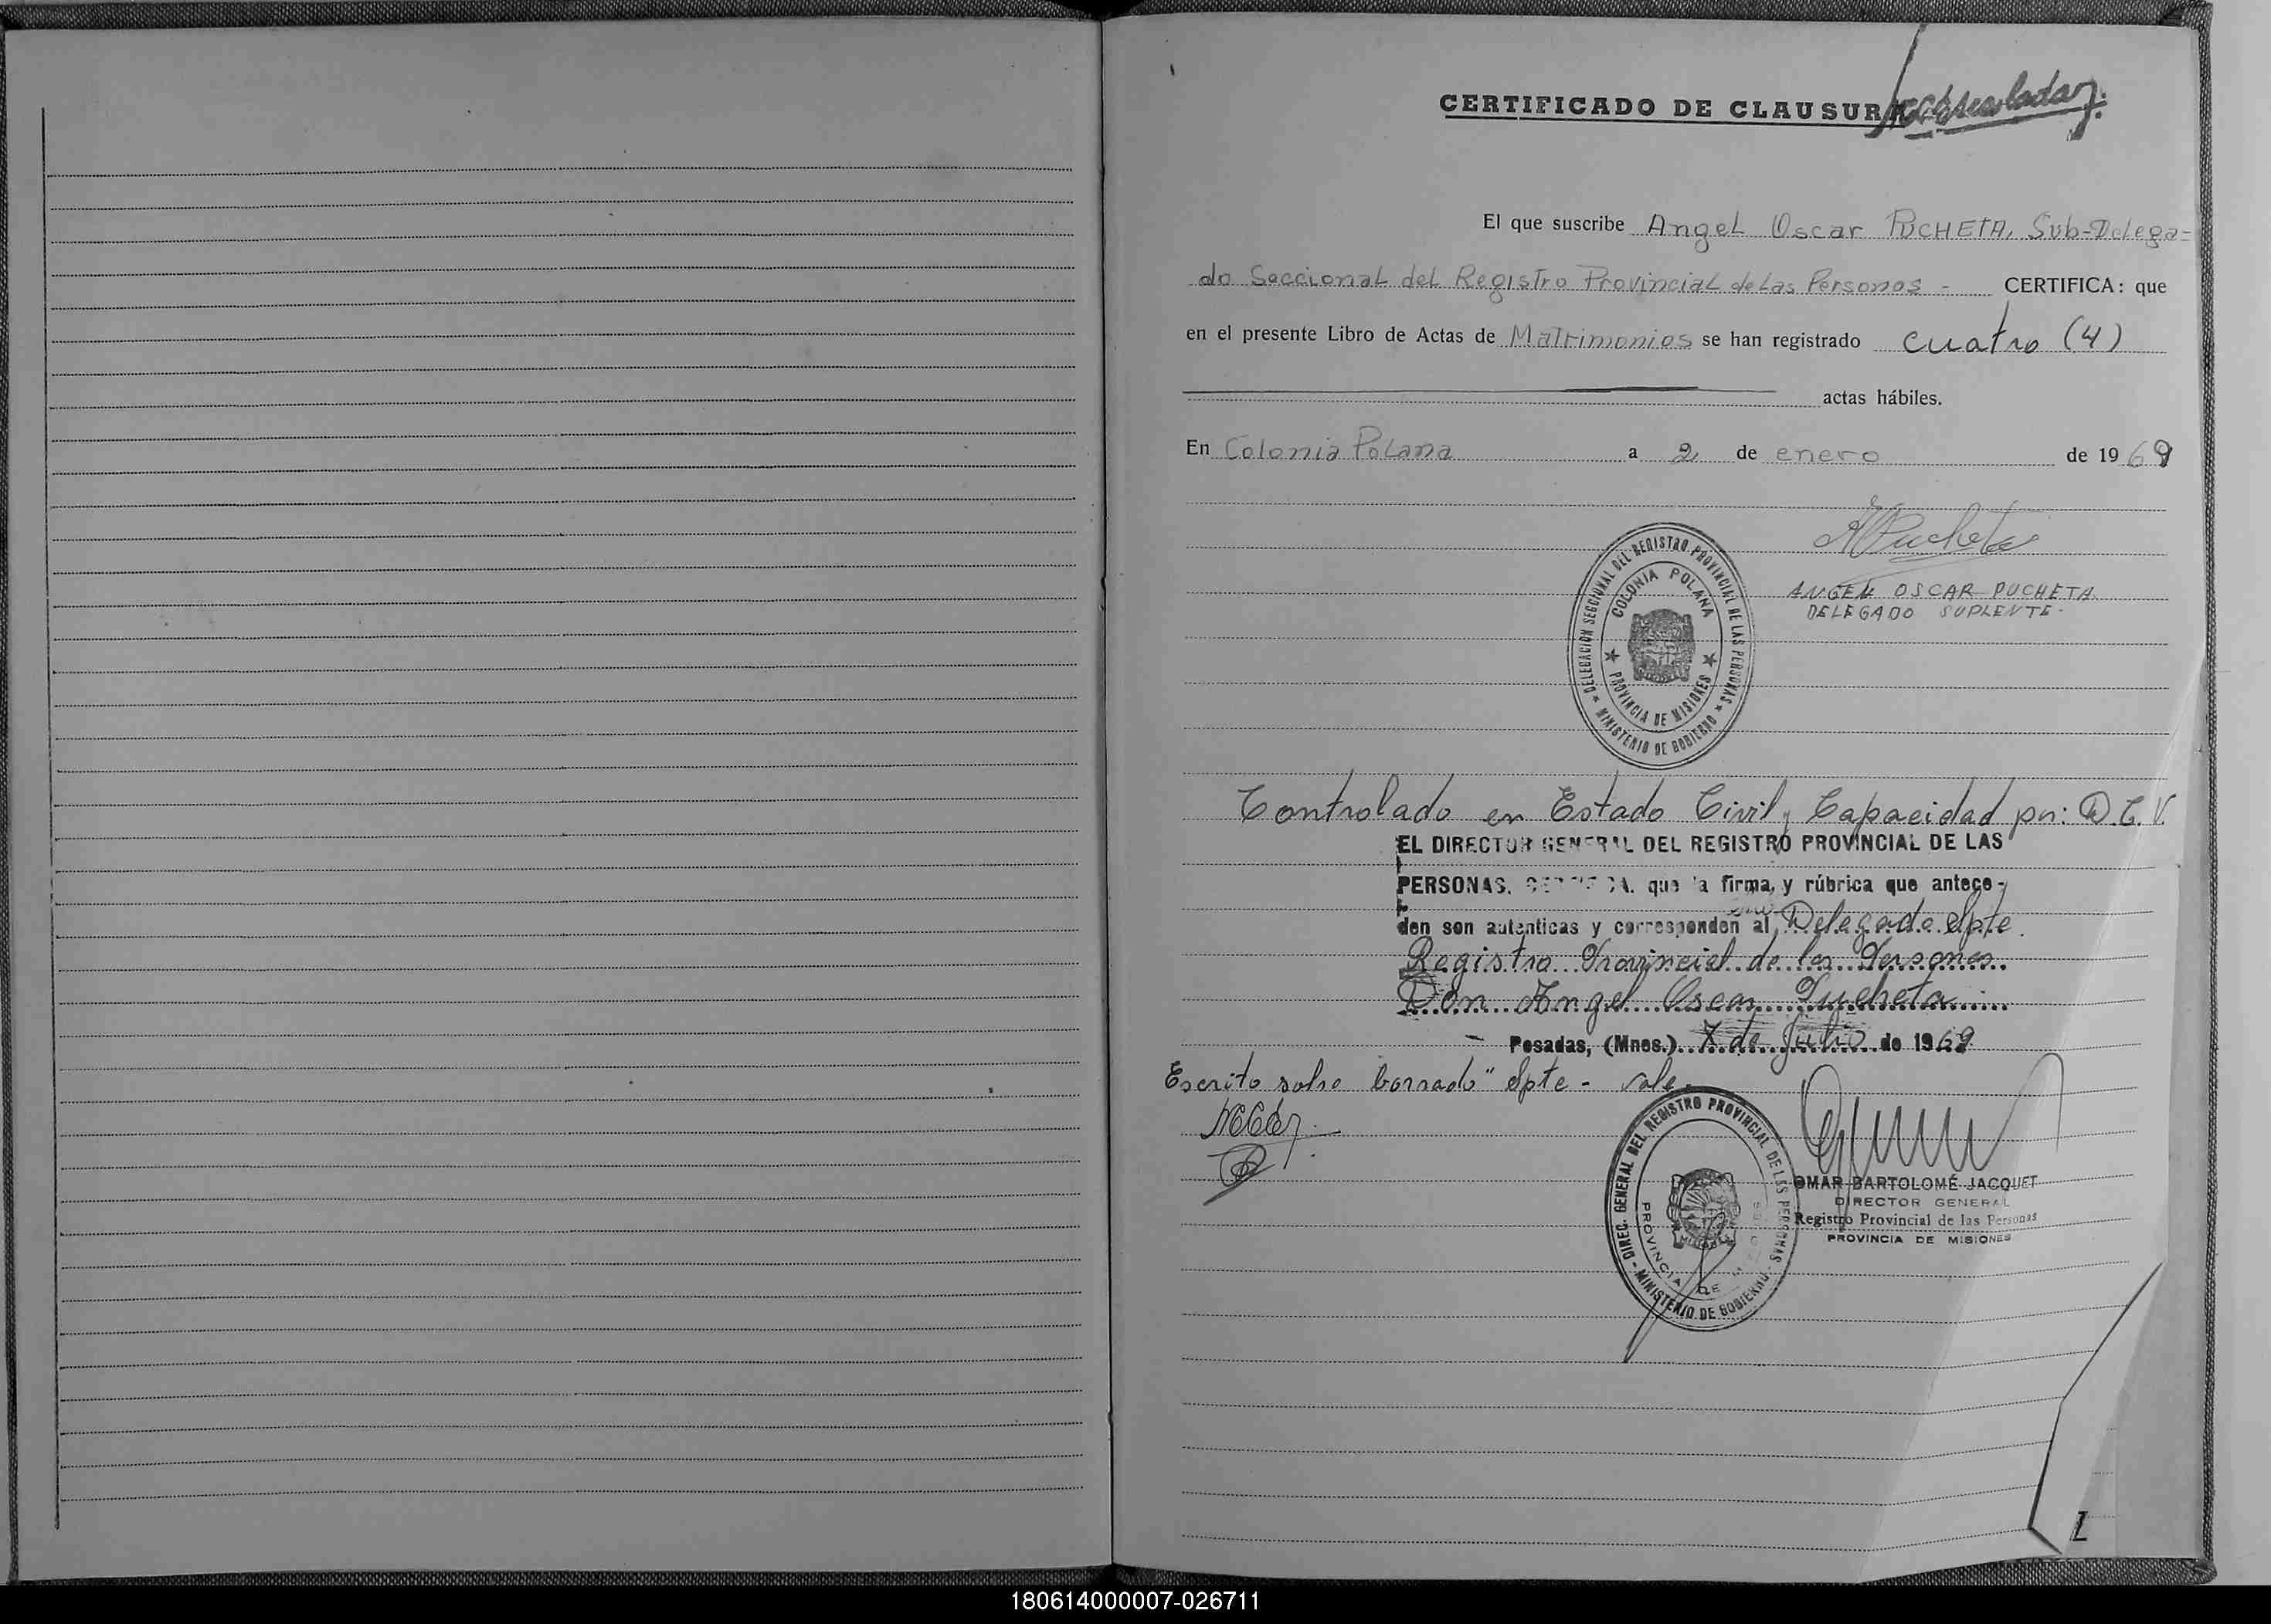 CERTIFICADO DE CLAUSURA
El que suscribe Angel Oscar PUCHETA, Sub-Delega-
do Seccional del Registro Provincial de Las Personas - CERTIFICA: que
en el presente Libro de Actas de Matrimonios se han registrado cuatro (4)
actas hábiles.
En Colonia Polana a 2 de enero de 1969
ANGEL OSCAR PUCHETA
DELEGADO SUPLENTE.
DELEGACION SECCIONAL DEL REGISTRO PROVINCIAL DE LAS PERSONAS
COLONIA POLANA
PROVINCIA DE MISIONES
MINISTERIO DE GOBIERNO
Controlado en Estado Civil y Capacidad por: D.C.V.
EL DIRECTOR GENERAL DEL REGISTRO PROVINCIAL DE LAS
PERSONAS, CERTIFICA, que la firma, y rúbrica que antece-
den son autenticas y corresponden al Delegado Spte.
Registro Provincial de las Personas
Don Angel Oscar Pucheta
Posadas, (Mnes.) 7 de Julio de 1969
Escrito sobre borrado" Spte - vale.
DIREC. GENERAL DEL REGISTRO PROVINCIAL DE LAS PERSONAS
PROVINCIA DE MISIONES
MISIONES
MINISTERIO DE GOBIERNO
OMAR BARTOLOMÉ JACQUET
DIRECTOR GENERAL
Registro Provincial de las Personas
PROVINCIA DE MISIONES
180614000007-026711